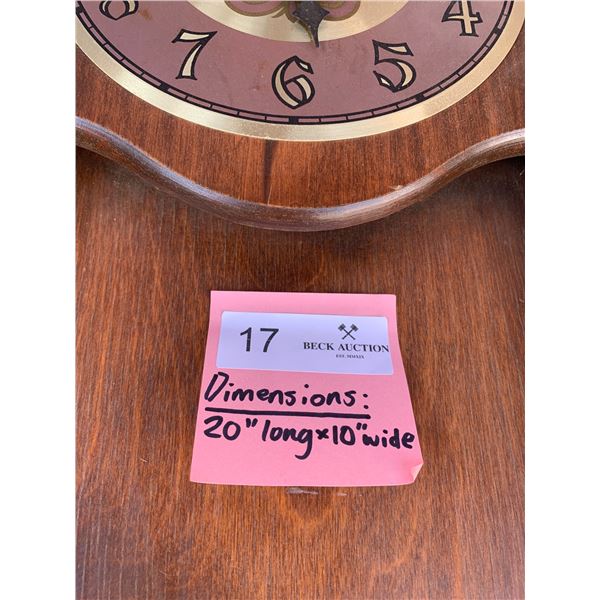 7 6 5 4
17
BECK AUCTION
EST. MMXIX
Dimensions:
20" long x 10" wide